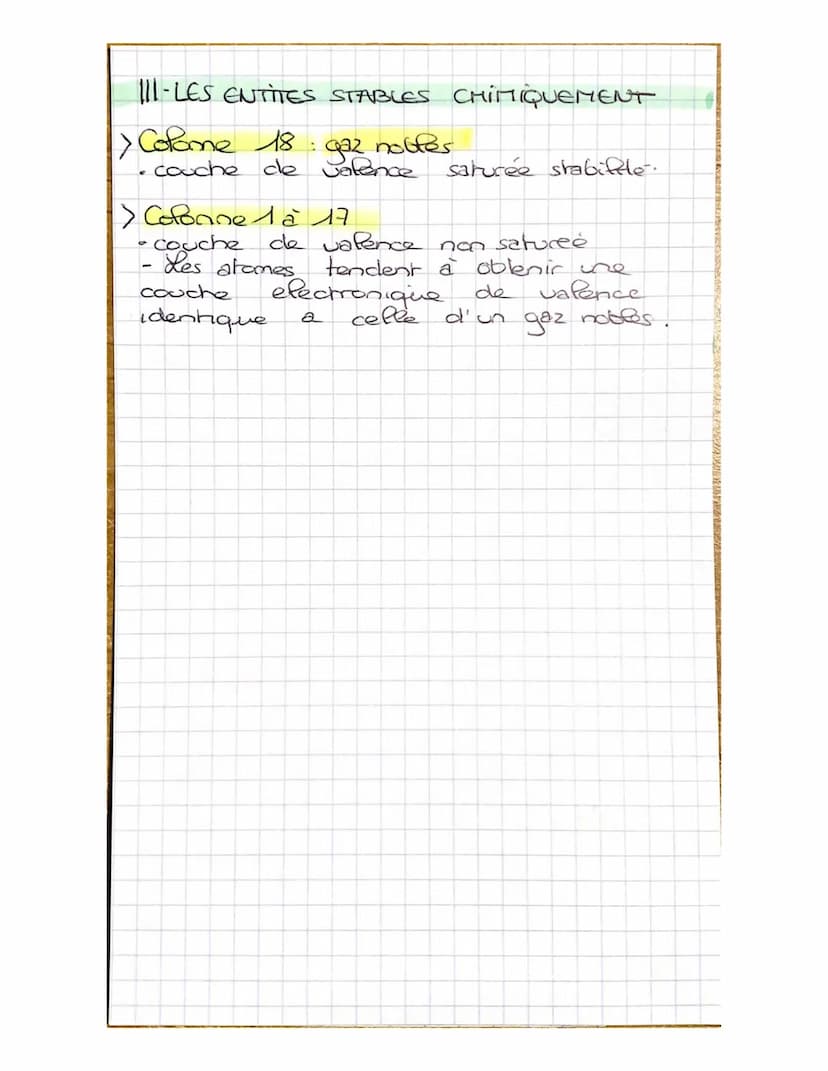 III-LES ENTITES STABLES CHIMIQUEMENT
> Colonne 18 : gaz nobles
• couche de valence saturée stabilité.
> Colonne 1 à 17
• couche de valence non saturée
- Les atomes tendent à obtenir une
couche electronique de valence
identique a celle d'un gaz nobles.